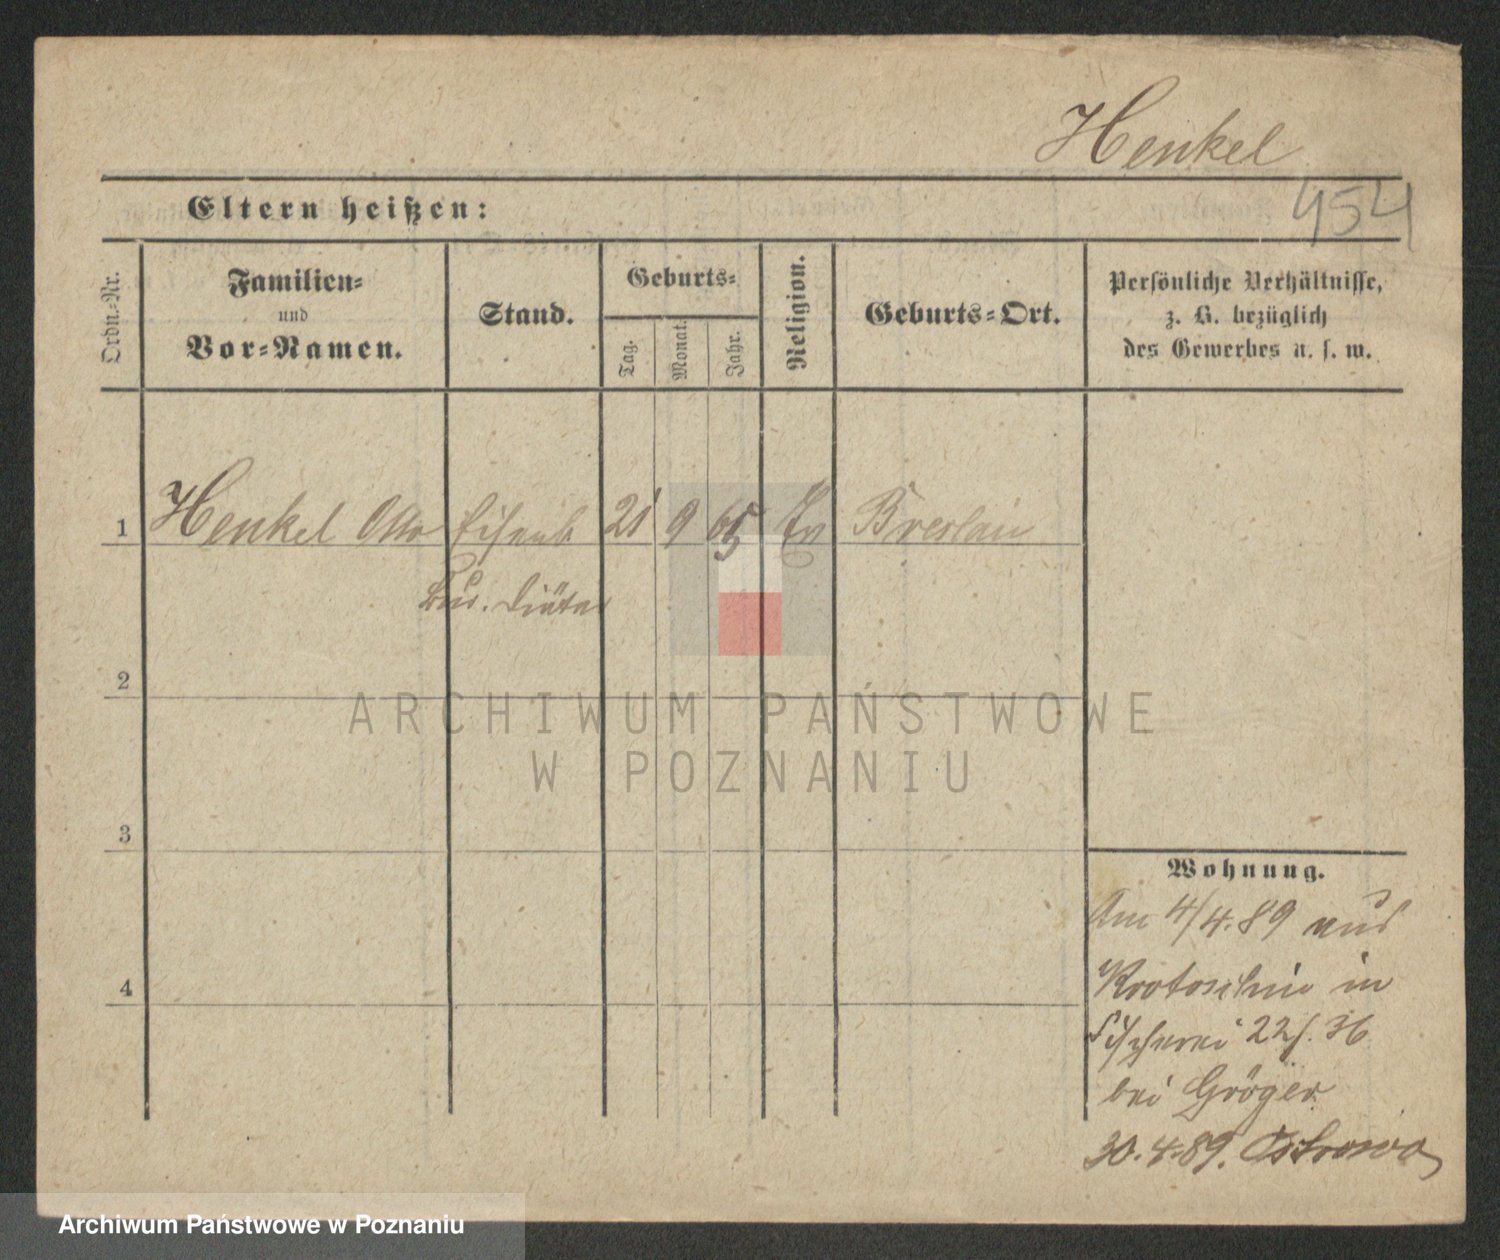 Henkel
454
Eltern heißen:
Ordn.-Nr.
Familien-
und
Vor-Namen.
Stand.
Geburts-
Tag.
Monat.
Jahr.
Religion.
Geburts-Ort.
Persönliche Verhältnisse,
z. B. bezüglich
des Gewerbes u. s. w.
1 Henkel Otto Eisenb 21 9 65 Ev Breslau
Bur. Diätar
2
ARCHIWUM PAŃSTWOWE
W POZNANIU
3
Wohnung.
Am 4/4.89 aus
Krotoschin in
4
Fischerei 22 H
bei Gröger
30.4.89. Ostrowo
Archiwum Państwowe w Poznaniu